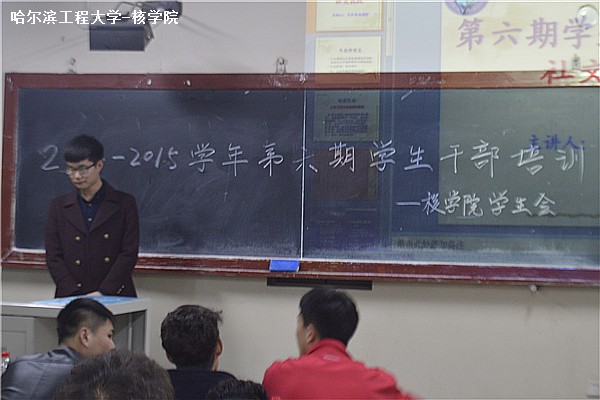 哈尔滨工程大学-核学院
第六期学
社交
主讲人:
2 -2015学年第六期学生干部培训
—核学院学生会